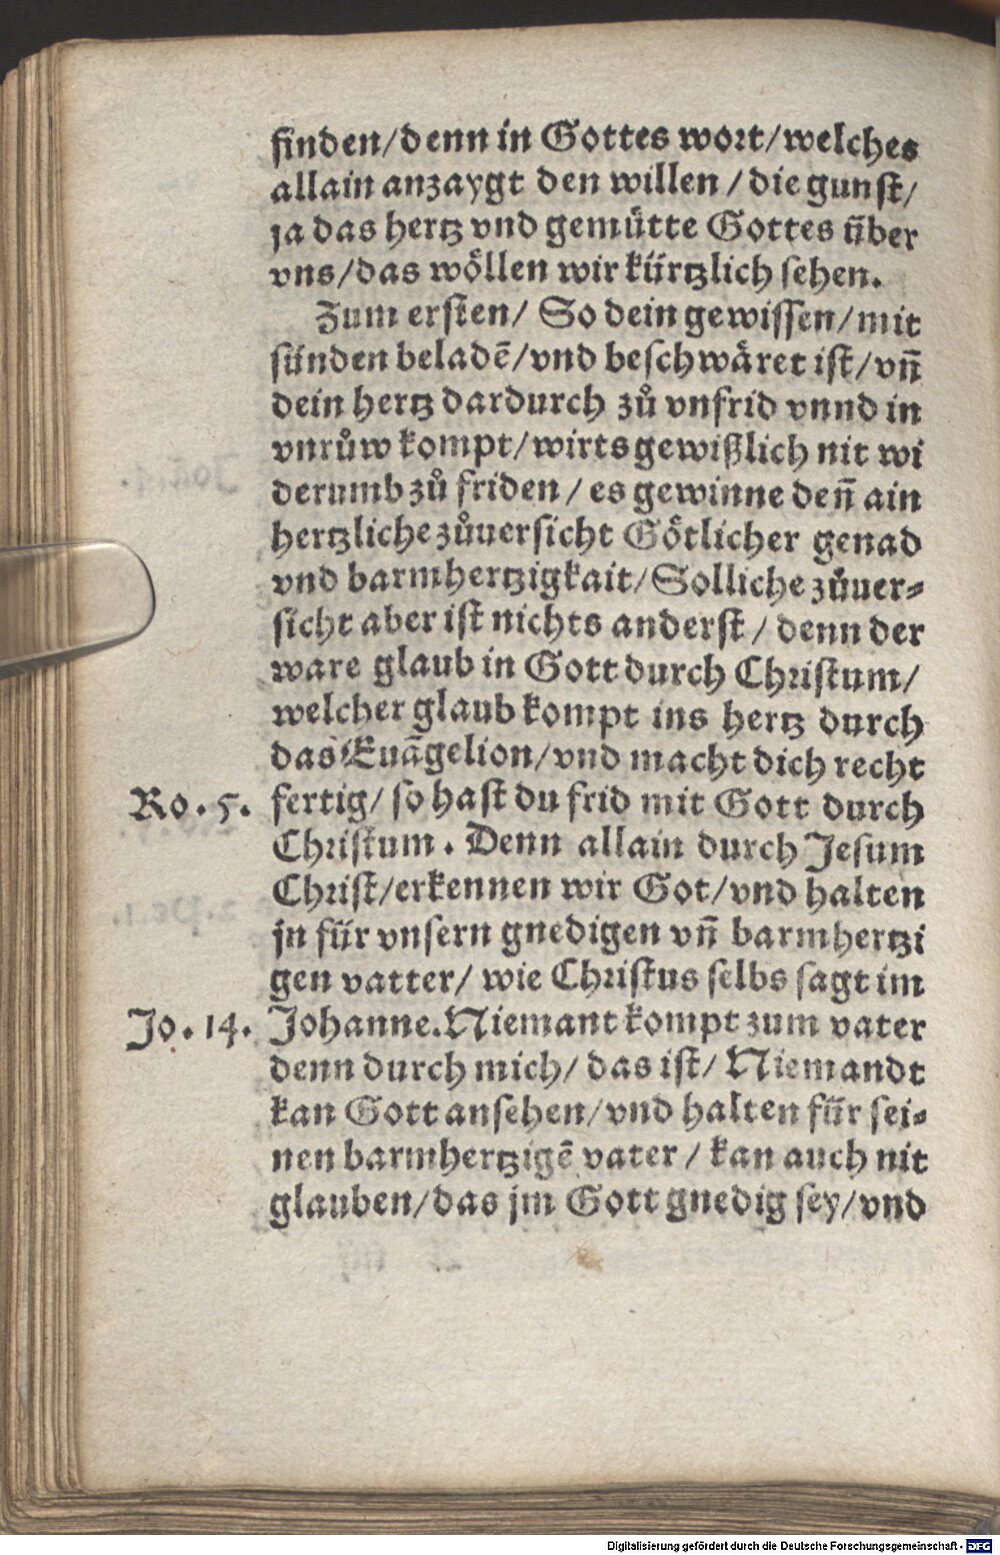 finden/denn in Gottes wort/welches
allain anzaygt den willen/die gunst/
ja das hertz vnd gemütte Gottes über
vns/das wöllen wir kürtzlich sehen.
Zum ersten/ So dein gewissen/mit
sünden beladē/vnd beschwäret ist/vñ
dein hertz dardurch zů vnfrid vnnd in
vnrůw kompt/wirts gewißlich nit wi
derumb zů friden/es gewinne deñ ain
hertzliche zůuersicht Götlicher genad
vnd barmhertzigkait/Solliche zůuer⸗
sicht aber ist nichts anderst/denn der
ware glaub in Gott durch Christum/
welcher glaub kompt ins hertz durch
das Euāgelion/vnd macht dich recht
Ro. 5. fertig/so hast du frid mit Gott durch
Christum. Denn allain durch Jesum
Christ/erkennen wir Got/vnd halten
jn für vnsern gnedigen vñ barmhertzi
gen vatter/wie Christus selbs sagt im
Jo. 14. Johanne.Niemant kompt zum vater
denn durch mich/das ist/Niemandt
kan Gott ansehen/vnd halten für sei⸗
nen barmhertzigē vater/kan auch nit
glauben/das jm Gott gnedig sey/vnd
Digitalisierung gefördert durch die Deutsche Forschungsgemeinschaft - DFG